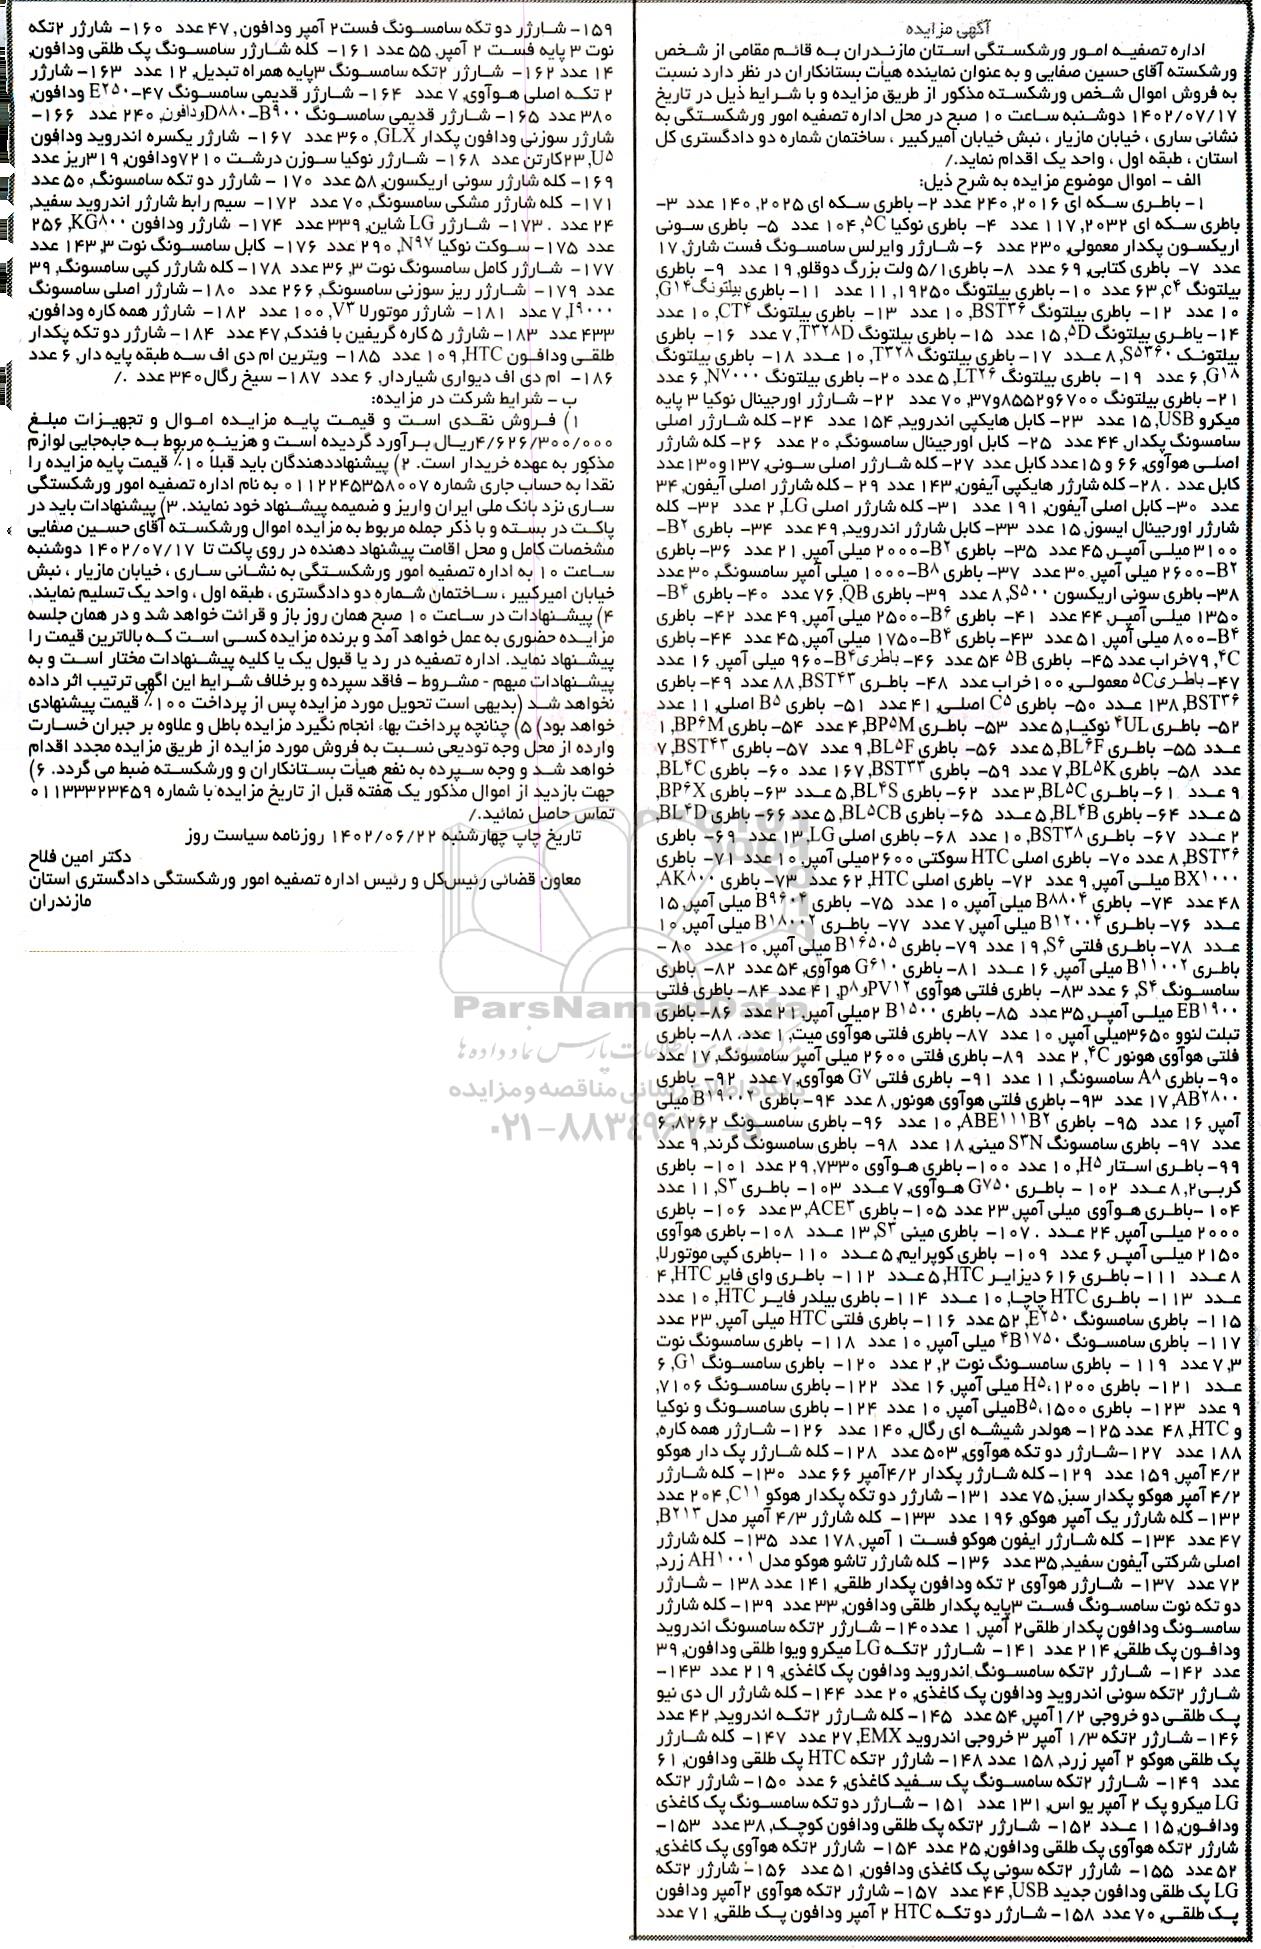 آگهی مزایده
اداره تصفیه امور ورشکستگی استان مازندران به قائم مقامی از شخص
ورشکسته آقای حسین صفایی و به عنوان نماینده هیأت بستانکاران در نظر دارد نسبت
به فروش اموال شخص ورشکسته مذکور از طریق مزایده و با شرایط ذیل در تاریخ
۱۴۰۲/۰۷/۱۷ دوشنبه ساعت ۱۰ صبح در محل اداره تصفیه امور ورشکستگی به
نشانی ساری ، خیابان مازیار ، نبش خیابان امیرکبیر ، ساختمان شماره دو دادگستری کل
استان ، طبقه اول ، واحد یک اقدام نماید./
الف - اموال موضوع مزایده به شرح ذیل:
۱- باطری سکه ای ۲۰۱۶, ۲۴۰ عدد ۲- باطری سکه ای ۲۰۲۵, ۱۴۰ عدد ۳-
باطری سکه ای ۲۰۳۲, ۱۱۷ عدد ۴- باطری نوکیا ۵C, ۱۰۴ عدد ۵- باطری سونی
اریکسون پکدار معمولی, ۲۳۰ عدد ۶- شارژر وایرلس سامسونگ فست شارژ, ۱۷
عدد ۷- باطری کتابی, ۶۹ عدد ۸- باطری ۵/۱ ولت بزرگ دوقلو, ۱۹ عدد ۹- باطری
بیلتونگ c۴, ۶۳ عدد ۱۰- باطری بیلتونگ ۱۹۲۵۰, ۱۱ عدد ۱۱- باطری بیلتونگ G۱۴,
۱۰ عدد ۱۲- باطری بیلتونگ BST۳۶, ۱۰ عدد ۱۳- باطری بیلتونگ CT۴, ۱۰ عدد
۱۴- باطری بیلتونگ ۵D, ۱۵ عدد ۱۵- باطری بیلتونگ T۳۲۸D, ۷ عدد ۱۶- باطری
بیلتونگ S۵۳۶۰, ۸ عدد ۱۷- باطری بیلتونگ T۳۲۸, ۱۰ عدد ۱۸- باطری بیلتونگ
G۱۸, ۶ عدد ۱۹- باطری بیلتونگ LT۲۶, ۵ عدد ۲۰- باطری بیلتونگ N۷۰۰۰, ۶ عدد
۲۱- باطری بیلتونگ ۶۷۰۰و۸۵۵۲و۳۷, ۷۰ عدد ۲۲- شارژر اورجینال نوکیا ۳ پایه
میکرو USB, ۱۵ عدد ۲۳- کابل هایکپی اندروید, ۱۵۴ عدد ۲۴- کله شارژر اصلی
سامسونگ پکدار, ۴۴ عدد ۲۵- کابل اورجینال سامسونگ, ۲۰ عدد ۲۶- کله شارژر
اصلی هوآوی, ۶۶ و ۱۵ عدد کابل عدد ۲۷- کله شارژر اصلی سونی, ۱۳۷و۱۳۰عدد
کابل عدد . ۲۸- کله شارژر هایکپی آیفون, ۱۴۳ عدد ۲۹ - کله شارژر اصلی آیفون, ۳۴
عدد ۳۰- کابل اصلی آیفون, ۱۹۱ عدد ۳۱- کله شارژر اصلی LG, ۲ عدد ۳۲- کله
شارژر اورجینال ایسوز, ۱۵ عدد ۳۳- کابل شارژر اندروید, ۴۹ عدد ۳۴- باطری B۲-
۳۱۰۰ میلی آمپر, ۴۵ عدد ۳۵- باطری B۲-۲۰۰۰ میلی آمپر, ۲۱ عدد ۳۶- باطری
B۲-۲۶۰۰ میلی آمپر, ۳۰ عدد ۳۷- باطری B۸-۱۰۰۰ میلی آمپر سامسونگ, ۳۰ عدد
۳۸- باطری سونی اریکسون S۵۰۰, ۸ عدد ۳۹- باطری QB, ۷۶ عدد ۴۰- باطری B۴-
۱۳۵۰ میلی آمپر, ۴۴ عدد ۴۱- باطری B۶-۲۵۰۰ میلی آمپر, ۴۹ عدد ۴۲- باطری
B۴-۸۰۰ میلی آمپر, ۵۱ عدد ۴۳- باطری B۴-۱۷۵۰ میلی آمپر, ۴۵ عدد ۴۴- باطری
۴C, ۷۹خراب عدد ۴۵- باطری ۵B ۵۴ عدد ۴۶- باطری B۴-۹۶۰ میلی آمپر, ۱۶ عدد
۴۷- باطری ۵C معمولی, ۱۰۰خراب عدد ۴۸- باطری BST۴۳, ۸۸ عدد ۴۹- باطری
BST۳۶, ۱۳۸ عدد ۵۰- باطری C۵ اصلی, ۴۱ عدد ۵۱- باطری B۵ اصلی, ۱۱ عدد
۵۲- باطری ۴UL نوکیا, ۵ عدد ۵۳- باطری BP۵M, ۴ عدد ۵۴- باطری BP۶M, ۱
عدد ۵۵- باطری BL۶F, ۵ عدد ۵۶- باطری BL۵F, ۹ عدد ۵۷- باطری BST۴۳, ۷
عدد ۵۸- باطری BL۵K, ۷ عدد ۵۹- باطری BST۳۳, ۱۶۷ عدد ۶۰- باطری BL۴C,
۹ عدد ۶۱- باطری BL۵C, ۳ عدد ۶۲- باطری BL۴S, ۵ عدد ۶۳- باطری BP۶X,
۵ عدد ۶۴- باطری BL۴B, ۵ عدد ۶۵- باطری BL۵CB, ۵ عدد ۶۶- باطری BL۴D,
۲ عدد ۶۷- باطری BST۳۸, ۱۰ عدد ۶۸- باطری اصلی LG, ۱۳ عدد ۶۹- باطری
BST۳۶, ۸ عدد ۷۰- باطری اصلی HTC سوکتی ۲۶۰۰میلی آمپر, ۱۰ عدد ۷۱- باطری
BX۱۰۰۰ میلی آمپر, ۹ عدد ۷۲- باطری اصلی HTC, ۶۲ عدد ۷۳- باطری AK۸۰۰,
۴۸ عدد ۷۴- باطری B۸۸۰۴ میلی آمپر, ۱۰ عدد ۷۵- باطری B۹۶۰۴ میلی آمپر, ۱۵
عدد ۷۶- باطری B۱۲۰۰۴ میلی آمپر, ۷ عدد ۷۷- باطری B۱۸۰۰۲ میلی آمپر, ۱۰
عدد ۷۸- باطری فلتی S۶, ۱۹ عدد ۷۹- باطری B۱۶۵۰۵ میلی آمپر, ۱۰ عدد ۸۰-
باطری B۱۱۰۰۲ میلی آمپر, ۱۶ عدد ۸۱- باطری G۶۱۰ هوآوی, ۵۴ عدد ۸۲- باطری
سامسونگ S۴, ۶ عدد ۸۳- باطری فلتی هوآوی PV۱۲وp۸, ۴۱ عدد ۸۴- باطری فلتی
EB۱۹۰۰ میلی آمپر, ۳۵ عدد ۸۵- باطری B۱۵۰۰ ۲میلی آمپر, ۲۱ عدد ۸۶- باطری
تبلت لنوو ۳۶۵۰میلی آمپر, ۱۰ عدد ۸۷- باطری فلتی هوآوی میت, ۱ عدد. ۸۸- باطری
فلتی هوآوی هونور ۴C, ۲ عدد ۸۹- باطری فلتی ۲۶۰۰ میلی آمپر سامسونگ, ۱۷ عدد
۹۰- باطری A۸ سامسونگ, ۱۱ عدد ۹۱- باطری فلتی G۷ هوآوی, ۷ عدد ۹۲- باطری
AB۲۸۰۰, ۱۷ عدد ۹۳- باطری فلتی هوآوی هونور, ۸ عدد ۹۴- باطری B۱۹۰۰۲ میلی
آمپر, ۱۶ عدد ۹۵- باطری ABE۱۱۱B۲, ۱۰ عدد ۹۶- باطری سامسونگ ۸۲۶۲, ۶
عدد ۹۷- باطری سامسونگ S۳N مینی, ۱۸ عدد ۹۸- باطری سامسونگ گرند, ۹ عدد
۹۹- باطری استار H۵, ۱۰ عدد ۱۰۰- باطری هوآوی ۷۳۳۰, ۲۹ عدد ۱۰۱- باطری
کربی۲, ۸ عدد ۱۰۲ - باطری G۷۵۰ هوآوی, ۷ عدد ۱۰۳- باطری S۳, ۱۱ عدد
۱۰۴ -باطری هوآوی میلی آمپر, ۲۳ عدد ۱۰۵- باطری ACE۳, ۳ عدد ۱۰۶- باطری
۲۰۰۰ میلی آمپر, ۲۴ عدد . ۱۰۷- باطری مینی S۳, ۱۳ عدد ۱۰۸- باطری هوآوی
۲۱۵۰ میلی آمپر, ۶ عدد ۱۰۹- باطری کوپرایم, ۵ عدد ۱۱۰ -باطری کپی موتورلا,
۸ عدد ۱۱۱- باطری ۶۱۶ دیزایر HTC, ۵ عدد ۱۱۲- باطری وای فایر HTC, ۴
عدد ۱۱۳- باطری HTC چاچا, ۱۰ عدد ۱۱۴- باطری بیلدر فایر HTC, ۱۰ عدد
۱۱۵- باطری سامسونگ E۲۵۰, ۵۲ عدد ۱۱۶- باطری فلتی HTC میلی آمپر, ۲۳ عدد
۱۱۷- باطری سامسونگ ۴B۱۷۵۰ میلی آمپر, ۱۰ عدد ۱۱۸- باطری سامسونگ نوت
۳, ۷ عدد ۱۱۹ - باطری سامسونگ نوت ۲, ۲ عدد ۱۲۰- باطری سامسونگ G۱, ۶
عدد ۱۲۱- باطری H۵،۱۲۰۰ میلی آمپر, ۱۶ عدد ۱۲۲- باطری سامسونگ ۷۱۰۶,
۹ عدد ۱۲۳- باطری B۵،۱۵۰۰میلی آمپر, ۱۰ عدد ۱۲۴- باطری سامسونگ و نوکیا
و HTC, ۴۸ عدد ۱۲۵- هولدر شیشه ای رگال, ۱۴۰ عدد ۱۲۶- شارژر همه کاره,
۱۸۸ عدد ۱۲۷-شارژر دو تکه هوآوی, ۵۰۳ عدد ۱۲۸- کله شارژر پک دار هوکو
۴/۲ آمپر, ۱۵۹ عدد ۱۲۹- کله شارژر پکدار ۴/۲آمپر ۶۶ عدد ۱۳۰- کله شارژر
۴/۲ آمپر هوکو پکدار سبز, ۷۵ عدد ۱۳۱- شارژر دو تکه پکدار هوکو C۱۱, ۲۰۴ عدد
۱۳۲- کله شارژر یک آمپر هوکو, ۱۹۶ عدد ۱۳۳- کله شارژر ۴/۳ آمپر مدل B۲۱۳,
۴۷ عدد ۱۳۴- کله شارژر ایفون هوکو فست ۱ آمپر, ۱۷۸ عدد ۱۳۵- کله شارژر
اصلی شرکتی آیفون سفید, ۳۵ عدد ۱۳۶- کله شارژر تاشو هوکو مدل AH۱۰۰۱ زرد,
۷۲ عدد ۱۳۷- شارژر هوآوی ۲ تکه ودافون پکدار طلقی, ۱۴۱ عدد ۱۳۸ - شارژر
دو تکه نوت سامسونگ فست ۳پایه پکدار طلقی ودافون, ۳۳ عدد ۱۳۹- کله شارژر
سامسونگ ودافون پکدار طلقی۲ آمپر, ۱ عدد ۱۴۰- شارژر ۲تکه سامسونگ اندروید
ودافون پک طلقی, ۲۱۴ عدد ۱۴۱- شارژر ۲تکه LG میکرو ویوا طلقی ودافون, ۳۹
عدد ۱۴۲- شارژر ۲تکه سامسونگ اندروید ودافون پک کاغذی, ۲۱۹ عدد ۱۴۳-
شارژر ۲تکه سونی اندروید ودافون پک کاغذی, ۲۰ عدد ۱۴۴- کله شارژر ال دی نیو
پک طلقی دو خروجی ۱/۲آمپر, ۵۴ عدد ۱۴۵- کله شارژر ۲تکه اندروید, ۴۲ عدد
۱۴۶- شارژر ۲تکه ۱/۳ آمپر ۳ خروجی اندروید EMX, ۲۷ عدد ۱۴۷- کله شارژر
پک طلقی هوکو ۲ آمپر زرد, ۱۵۸ عدد ۱۴۸- شارژر ۲تکه HTC پک طلقی ودافون, ۶۱
عدد ۱۴۹- شارژر ۲تکه سامسونگ پک سفید کاغذی, ۶ عدد ۱۵۰- شارژر ۲تکه
LG میکرو پک ۲ آمپر یو اس, ۱۳۱ عدد ۱۵۱ - شارژر دو تکه سامسونگ پک کاغذی
ودافون, ۱۱۵ عدد ۱۵۲- شارژر ۲تکه پک طلقی ودافون کوچک, ۳۸ عدد ۱۵۳-
شارژر ۲تکه هوآوی پک طلقی ودافون, ۲۵ عدد ۱۵۴- شارژر ۲تکه هوآوی پک کاغذی,
۵۲ عدد ۱۵۵- شارژر ۲تکه سونی پک کاغذی ودافون, ۵۱ عدد ۱۵۶- شارژر ۲تکه
LG پک طلقی ودافون جدید USB, ۴۴ عدد ۱۵۷- شارژر ۲تکه هوآوی ۲آمپر ودافون
پک طلقی, ۷۰ عدد ۱۵۸- شارژر دو تکه HTC ۲ آمپر ودافون پک طلقی, ۷۱ عدد
۱۵۹- شارژر دو تکه سامسونگ فست۲ آمپر ودافون, ۴۷ عدد ۱۶۰- شارژر ۲تکه
نوت ۳ پایه فست ۲ آمپر, ۵۵ عدد ۱۶۱- کله شارژر سامسونگ پک طلقی ودافون,
۱۴ عدد ۱۶۲- شارژر ۲تکه سامسونگ ۳پایه همراه تبدیل, ۱۲ عدد ۱۶۳- شارژر
۲ تکه اصلی هوآوی, ۷ عدد ۱۶۴- شارژر قدیمی سامسونگ E۲۵۰-۴۷ ودافون,
۳۸۰ عدد ۱۶۵- شارژر قدیمی سامسونگ D۸۸۰-B۹۰۰ودافون, ۲۴۰ عدد ۱۶۶-
شارژر سوزنی ودافون پکدار GLX, ۳۶۰ عدد ۱۶۷- شارژر یکسره اندروید ودافون
U۵, ۲۳کارتن عدد ۱۶۸- شارژر نوکیا سوزن درشت ۷۲۱۰ودافون, ۳۱۹ریز عدد
۱۶۹- کله شارژر سونی اریکسون, ۵۸ عدد ۱۷۰ - شارژر دو تکه سامسونگ, ۵۰ عدد
۱۷۱- کله شارژر مشکی سامسونگ, ۷۰ عدد ۱۷۲- سیم رابط شارژر اندروید سفید,
۲۴ عدد . ۱۷۳- شارژر LG شاین, ۳۳۹ عدد ۱۷۴- شارژر ودافون KG۸۰۰, ۲۵۶
عدد ۱۷۵- سوکت نوکیا N۹۷, ۲۹۰ عدد ۱۷۶- کابل سامسونگ نوت ۳, ۱۴۳ عدد
۱۷۷- شارژر کامل سامسونگ نوت ۳, ۳۶ عدد ۱۷۸- کله شارژر کپی سامسونگ, ۳۹
عدد ۱۷۹- شارژر ریز سوزنی سامسونگ, ۲۶۶ عدد ۱۸۰- شارژر اصلی سامسونگ
I۹۰۰۰, ۷ عدد ۱۸۱- شارژر موتورلا V۳, ۱۰۰ عدد ۱۸۲- شارژر همه کاره ودافون,
۴۳۳ عدد ۱۸۳- شارژر ۵ کاره گریفین با فندک, ۴۷ عدد ۱۸۴- شارژر دو تکه پکدار
طلقی ودافون HTC, ۱۰۹ عدد ۱۸۵- ویترین ام دی اف سه طبقه پایه دار, ۶ عدد
۱۸۶- ام دی اف دیواری شیاردار, ۶ عدد ۱۸۷- سیخ رگال۳۴۰ عدد ./
ب - شرایط شرکت در مزایده:
۱) فروش نقدی است و قیمت پایه مزایده اموال و تجهیزات مبلغ
۴/۶۲۶/۳۰۰/۰۰۰ریال برآورد گردیده است و هزینه مربوط به جابه‌جایی لوازم
مذکور به عهده خریدار است. ۲) پیشنهاددهندگان باید قبلاً ۱۰٪ قیمت پایه مزایده را
نقداً به حساب جاری شماره ۰۱۱۲۲۴۵۳۵۸۰۰۷ به نام اداره تصفیه امور ورشکستگی
ساری نزد بانک ملی ایران واریز و ضمیمه پیشنهاد خود نمایند. ۳) پیشنهادات باید در
پاکت در بسته و با ذکر جمله مربوط به مزایده اموال ورشکسته آقای حسین صفایی
مشخصات کامل و محل اقامت پیشنهاد دهنده در روی پاکت تا ۱۴۰۲/۰۷/۱۷ دوشنبه
ساعت ۱۰ به اداره تصفیه امور ورشکستگی به نشانی ساری ، خیابان مازیار ، نبش
خیابان امیرکبیر ، ساختمان شماره دو دادگستری ، طبقه اول ، واحد یک تسلیم نمایند.
۴) پیشنهادات در ساعت ۱۰ صبح همان روز باز و قرائت خواهد شد و در همان جلسه
مزایده حضوری به عمل خواهد آمد و برنده مزایده کسی است که بالاترین قیمت را
پیشنهاد نماید. اداره تصفیه در رد یا قبول یک یا کلیه پیشنهادات مختار است و به
پیشنهادات مبهم - مشروط - فاقد سپرده و برخلاف شرایط این آگهی ترتیب اثر داده
نخواهد شد (بدیهی است تحویل مورد مزایده پس از پرداخت ۱۰۰٪ قیمت پیشنهادی
خواهد بود) ۵) چنانچه پرداخت بهاء انجام نگیرد مزایده باطل و علاوه بر جبران خسارت
وارده از محل وجه تودیعی نسبت به فروش مورد مزایده از طریق مزایده مجدد اقدام
خواهد شد و وجه سپرده به نفع هیأت بستانکاران و ورشکسته ضبط می گردد. ۶)
جهت بازدید از اموال مذکور یک هفته قبل از تاریخ مزایده با شماره ۰۱۱۳۳۳۲۳۴۵۹
تماس حاصل نمائید./
تاریخ چاپ چهارشنبه ۱۴۰۲/۰۶/۲۲ روزنامه سیاست روز
دکتر امین فلاح
معاون قضائی رئیس‌کل و رئیس اداره تصفیه امور ورشکستگی دادگستری استان
مازندران
ParsNamadData
پایگاه اطلاع رسانی مناقصه و مزایده
۰۲۱-۸۸۳۴۹۶۷۰-۵